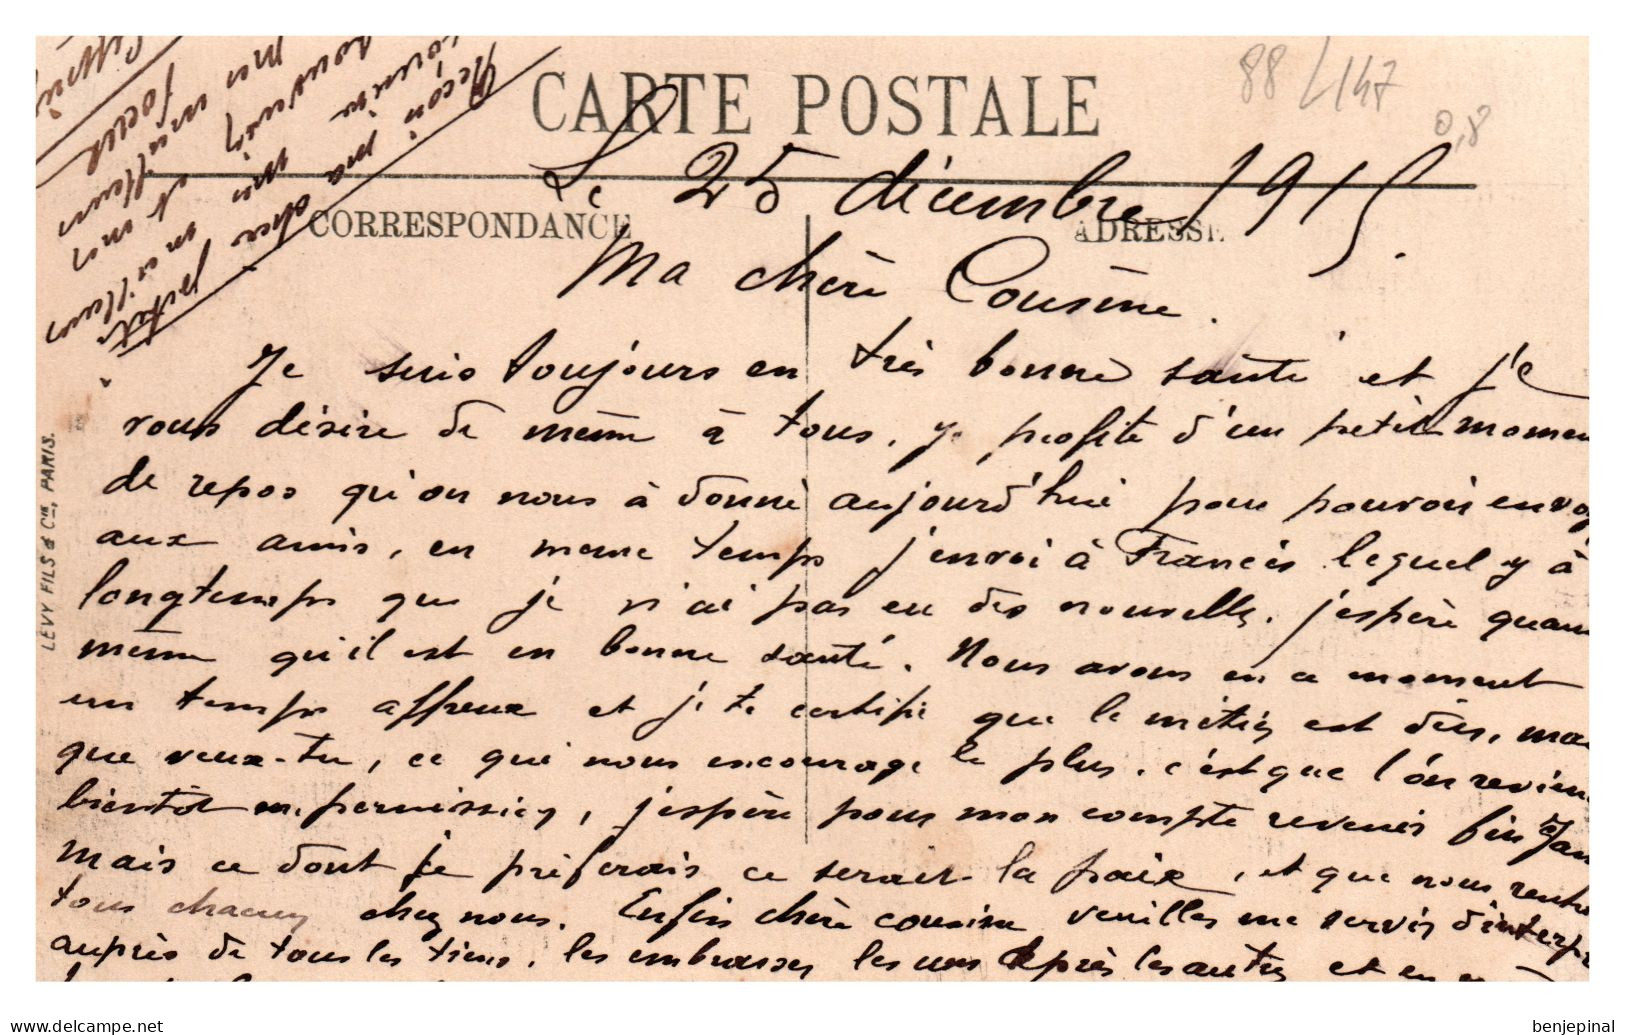 CARTE POSTALE
88/147
0,8
CORRESPONDANCE
ADRESSE
Le 25 décembre 1915.
Ma chère Cousine.
Je suis toujours en très bonne santé et je
vous désire de même à tous. je profite d'un petit momen
de repos qu'on nous à donné aujourd'hui pour pouvoir envoy
aux amis, en meme temps j'envoi à Francis lequel y à
longtemps que je n'ai pas eu des nouvelles. j'espère quan
même qu'il est en bonne santé. Nous avons en ce moment
un temps affreux et je te certifie que le métier est dur, mai
que veux-tu, ce qui nous encourage le plus. c'est que l'on revien
bientôt en permission, j'espère pour mon compte revenir fin Jan
mais ce dont je préferais ce serait la paix, et que nous rentr
tous chacun chez nous. Enfin chère cousine veuilles me servir d'interpr
auprès de tous les tiens, les embrasser les uns après les autres et en
Reçois ma chère petite
cousine
meilleurs
et
LEVY FILS & Cie, PARIS.
www.delcampe.net
benjepinal